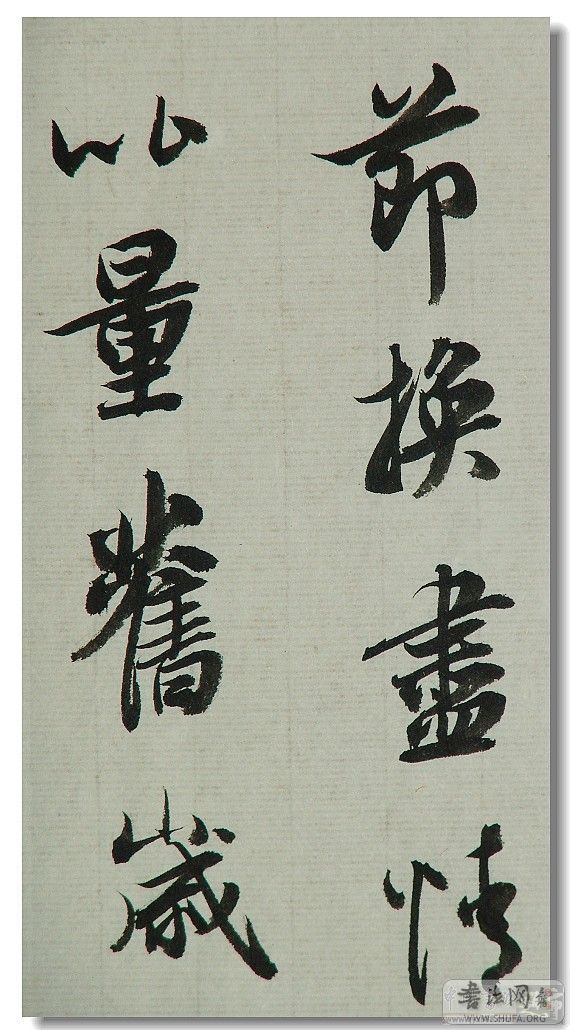 節換盡情
以量舊歲
書法网
WWW.SHUFA.ORG